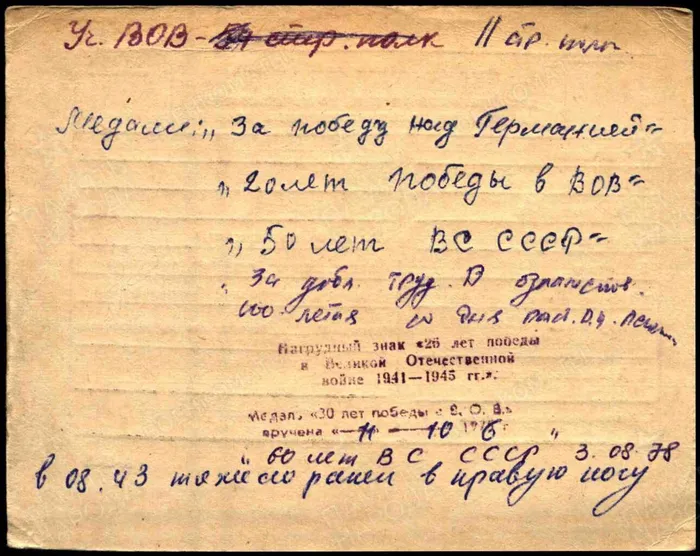 Уч. ВОВ - 54 стр. полк 11 стр. полк
Медали: „За победу над Германией"
„20 лет победы в ВОВ"
„50 лет ВС СССР"
„За добл. труд. В ознаменов.
100-летия со дня рожд. В.И. Ленина
Нагрудный знак «25 лет победы
в Великой Отечественной
войне 1941—1945 гг.».
Медаль «30 лет победы в В. О. В.»
вручена «—11—10 6 г.
„60 лет ВС СССР 3.08.78
в 08.43 тяжело ранен в правую ногу